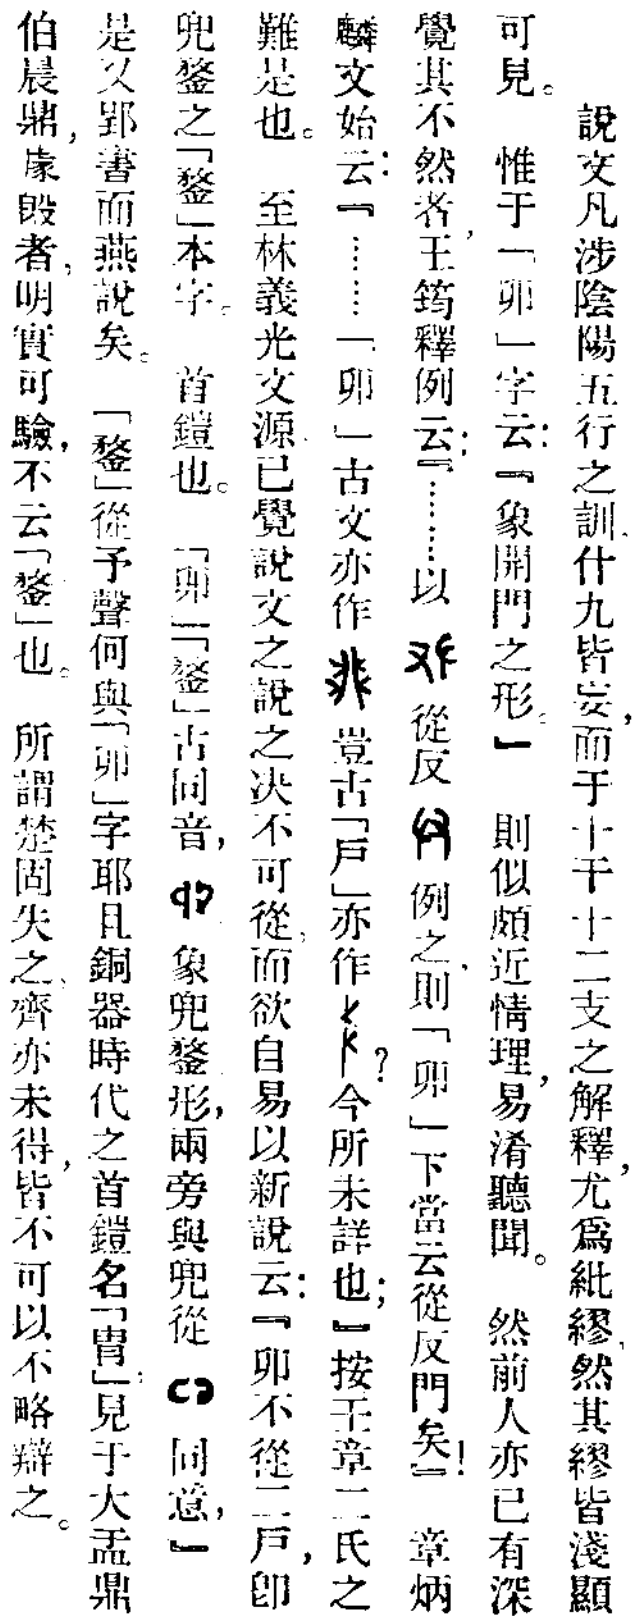 說文凡涉陰陽五行之訓、什九皆妄，而于十干十二支之解釋，尤爲紕繆、然其繆皆淺顯
可見。　惟于「卯」字云：『象開門之形。』　則似頗近情理，易淆聽聞。　然前人亦已有深
覺其不然者，王筠釋例云：『……以　從反　例之、則「卯」下當云從反門矣！』　章炳
麟文始云：『……「卯」古文亦作　豈古「戶」亦作　？今所未詳也；』按王章二氏之
難是也。　至林義光文源、已覺說文之說之决不可從，而欲自易以新說云：『卯不從二戶，卽
兜鍪之「鍪」本字。　首鎧也。　「卯」「鍪」古同音，　象兜鍪形，兩旁與兜從　同意，』
是又郢書而燕說矣。　「鍪」從予聲何與「卯」字耶且銅器時代之首鎧名「冑」，見于大盂鼎
伯晨鼎，䖒毁者，明實可驗，不云「鍪」也。　所謂楚固失之、齊亦未得，皆不可以不略辯之。